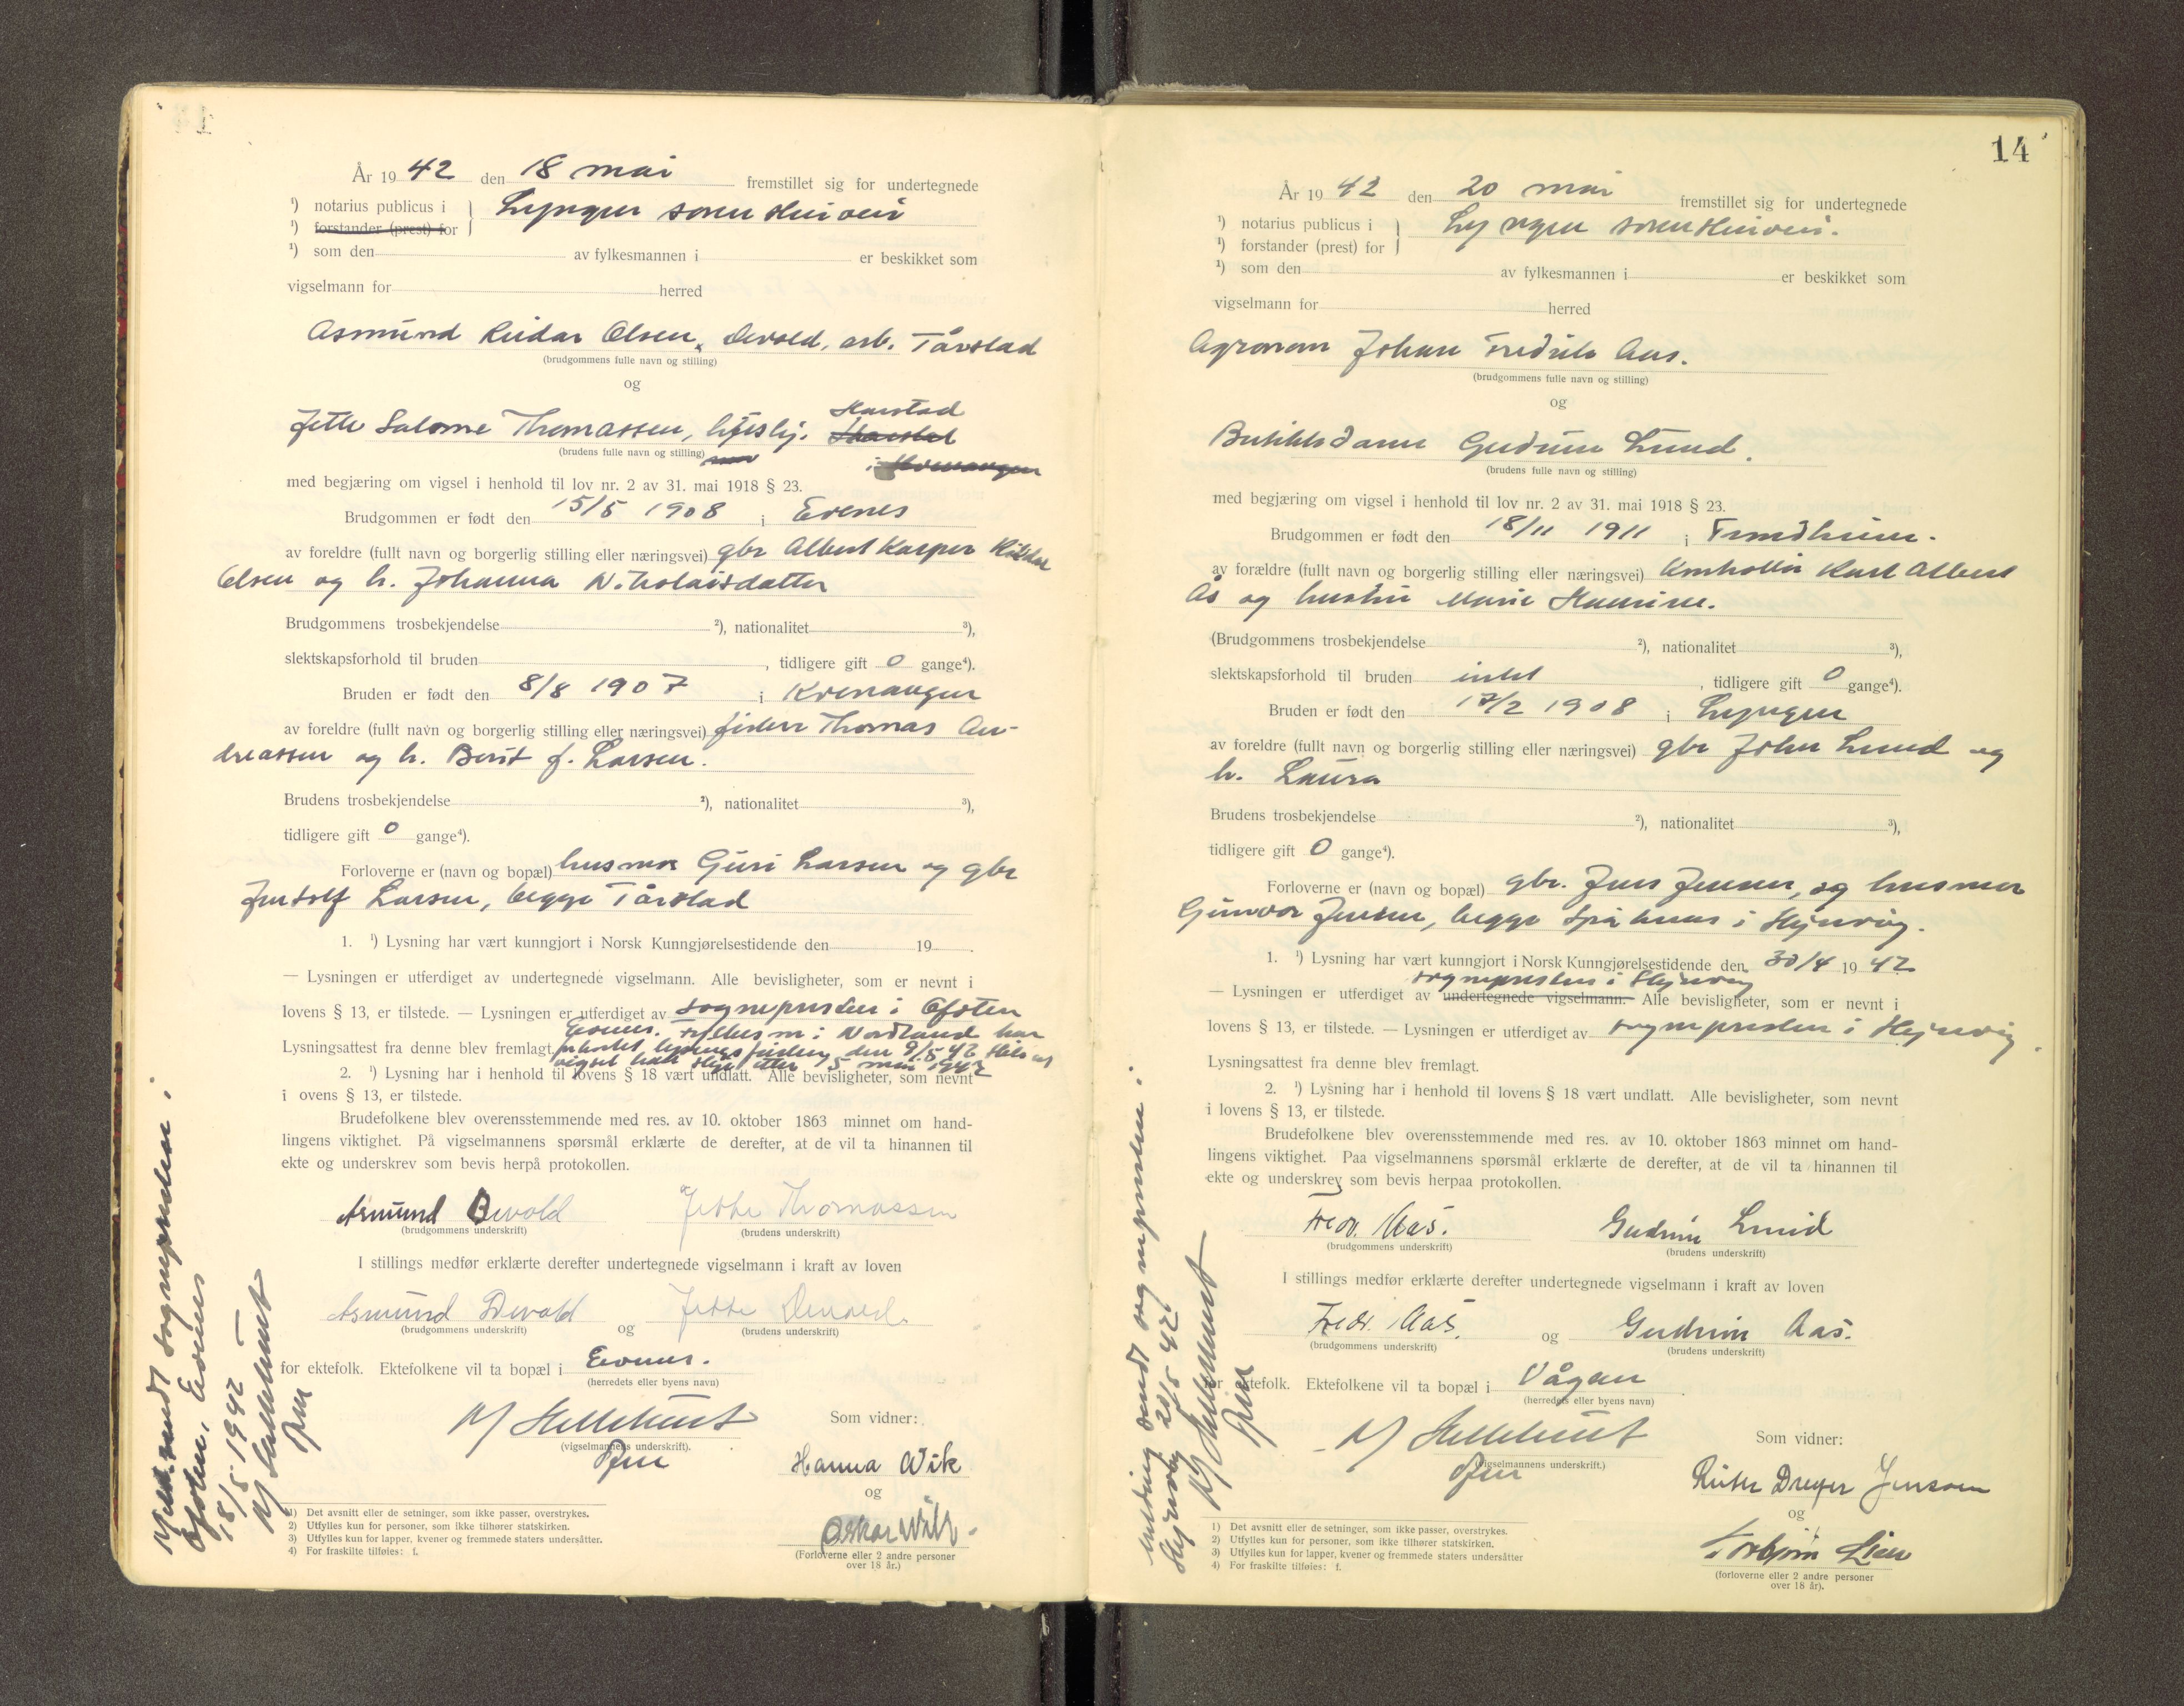 År 1942 den 18 mai fremstillet sig for undertegnede
¹) notarius publicus i } Lyngen sorenskriveri
¹) forstander (prest) for
¹) som den av fylkesmannen i er beskikket som
vigselmann for herred
Asmund Reidar Olsen, Devold, arb. Tårstad
(brudgommens fulle navn og stilling)
og
Harstad
Jette Salome Thomassen, hushj.
(brudens fulle navn og stilling)
i Kvenangen
med begjæring om vigsel i henhold til lov nr. 2 av 31. mai 1918 § 23.
Brudgommen er født den 15/5 1908 i Evenes
av foreldre (fullt navn og borgerlig stilling eller næringsvei) gbr Albert Kasper
Olsen og h. Johanna Nikolaisdatter
Brudgommens trosbekjendelse ²), nationalitet ³),
slektskapsforhold til bruden , tidligere gift 0 gange⁴).
Bruden er født den 8/8 1907 i Kvenangen
av foreldre (fullt navn og borgerlig stilling eller næringsvei) fisker Thomas An-
dreassen og h. Berit f. Larsen.
Brudens trosbekjendelse ²), nationalitet ³),
tidligere gift 0 gange⁴).
Forloverne er (navn og bopæl) husmor Guri Larsen og gbr
Larsen, begge Tårstad
1. ¹) Lysning har vært kunngjort i Norsk Kunngjørelsestidende den 19 .
— Lysningen er utferdiget av undertegnede vigselmann. Alle bevisligheter, som er nevnt i
lovens § 13, er tilstede. — Lysningen er utferdiget av sognepresten i Ofoten
Evenes. Fylkesm. i Nordland har
Lysningsattest fra denne blev fremlagt. forkortet lysningsfristen den 9/5 42 slik at
vigsel kan skje etter 15 mai 1942
2. ¹) Lysning har i henhold til lovens § 18 vært undlatt. Alle bevisligheter, som nevnt
i ovens § 13, er tilstede.
Brudefolkene blev overensstemmende med res. av 10. oktober 1863 minnet om hand-
lingens viktighet. På vigselmannens spørsmål erklærte de derefter, at de vil ta hinannen til
ekte og underskrev som bevis herpå protokollen.
Asmund Devold Jette Thomassen
(brudgommens underskrift) (brudens underskrift)
I stillings medfør erklærte derefter undertegnede vigselmann i kraft av loven
Asmund Devold og Jette Devold.
(brudgommens underskrift) (brudens underskrift)
for ektefolk. Ektefolkene vil ta bopæl i Evenes.
(herredets eller byens navn)
Som vidner:
(vigselmannens underskrift).
Hanna Wik
og
Oskar Wik
(Forloverne eller 2 andre personer
over 18 år.)
1) Det avsnitt eller de setninger, som ikke passer, overstrykes.
2) Utfylles kun for personer, som ikke tilhører statskirken.
3) Utfylles kun for lapper, kvener og fremmede staters undersåtter.
4) For fraskilte tilføies: f.
Meld. sendt sognepresten i
Ofoten, Evenes
18/5 1942
14
År 1942 den 20 mai fremstillet sig for undertegnede
¹) notarius publicus i } Lyngen sorenskriveri.
¹) forstander (prest) for
¹) som den av fylkesmannen i er beskikket som
vigselmann for herred
Agronom Johan Fredrik Aas.
(brudgommens fulle navn og stilling)
og
Butikkdame Gudrun Lund.
(brudens fulle navn og stilling)
med begjæring om vigsel i henhold til lov nr. 2 av 31. mai 1918 § 23.
Brudgommen er født den 18/11 1911 i Trondheim.
av forældre (fullt navn og borgerlig stilling eller næringsvei) Kontrollør Karl Albert
Ås og hustru Marie
(Brudgommens trosbekjendelse ²), nationalitet ³),
slektskapsforhold til bruden intet , tidligere gift 0 gange⁴).
Bruden er født den 17/2 1908 i Lyngen
av foreldre (fullt navn og borgerlig stilling eller næringsvei) gbr John Lund og
h. Laura
Brudens trosbekjendelse ²), nationalitet ³),
tidligere gift 0 gange⁴).
Forloverne er (navn og bopæl) gbr. Jens Jensen, og husmor
Gunvor Jensen, begge Spåknes i Skjervøy.
1. ¹) Lysning har vært kunngjort i Norsk Kunngjørelsestidende den 30/4 1942
sognepresten i Skjervøy
— Lysningen er utferdiget av undertegnede vigselmann. Alle bevisligheter, som er nevnt i
lovens § 13, er tilstede. — Lysningen er utferdiget av sognepresten i Skjervøy.
Lysningsattest fra denne blev fremlagt.
2. ¹) Lysning har i henhold til lovens § 18 vært undlatt. Alle bevisligheter, som nevnt
i lovens § 13, er tilstede.
Brudefolkene blev overensstemmende med res. av 10. oktober 1863 minnet om hand-
lingens viktighet. Paa vigselmannens spørsmål erklærte de derefter, at de vil ta hinannen til
ekte og underskrev som bevis herpaa protokollen.
Fredr. Aas. Gudrun Lund
(brudgommens underskrift) (brudens underskrift)
I stillings medfør erklærte derefter undertegnede vigselmann i kraft av loven
Fredr. Aas. og Gudrun Aas.
(brudgommens underskrift) (brudens underskrift)
for ektefolk. Ektefolkene vil ta bopæl i Vågan
(herredets eller byens navn)
Som vidner:
(vigselmannens underskrift.)
Dreyer Jensen
og
Torbjørn Lien
(forloverne eller 2 andre personer
over 18 år).
1) Det avsnitt eller de setninger, som ikke passer, overstrykes.
2) Utfylles kun for personer, som ikke tilhører statskirken.
3) Utfylles kun for lapper, kvener og fremmede staters undersåtter
4) For fraskilte tilføies: f.
Melding sendt sognepresten i
Skjervøy 20/5 42